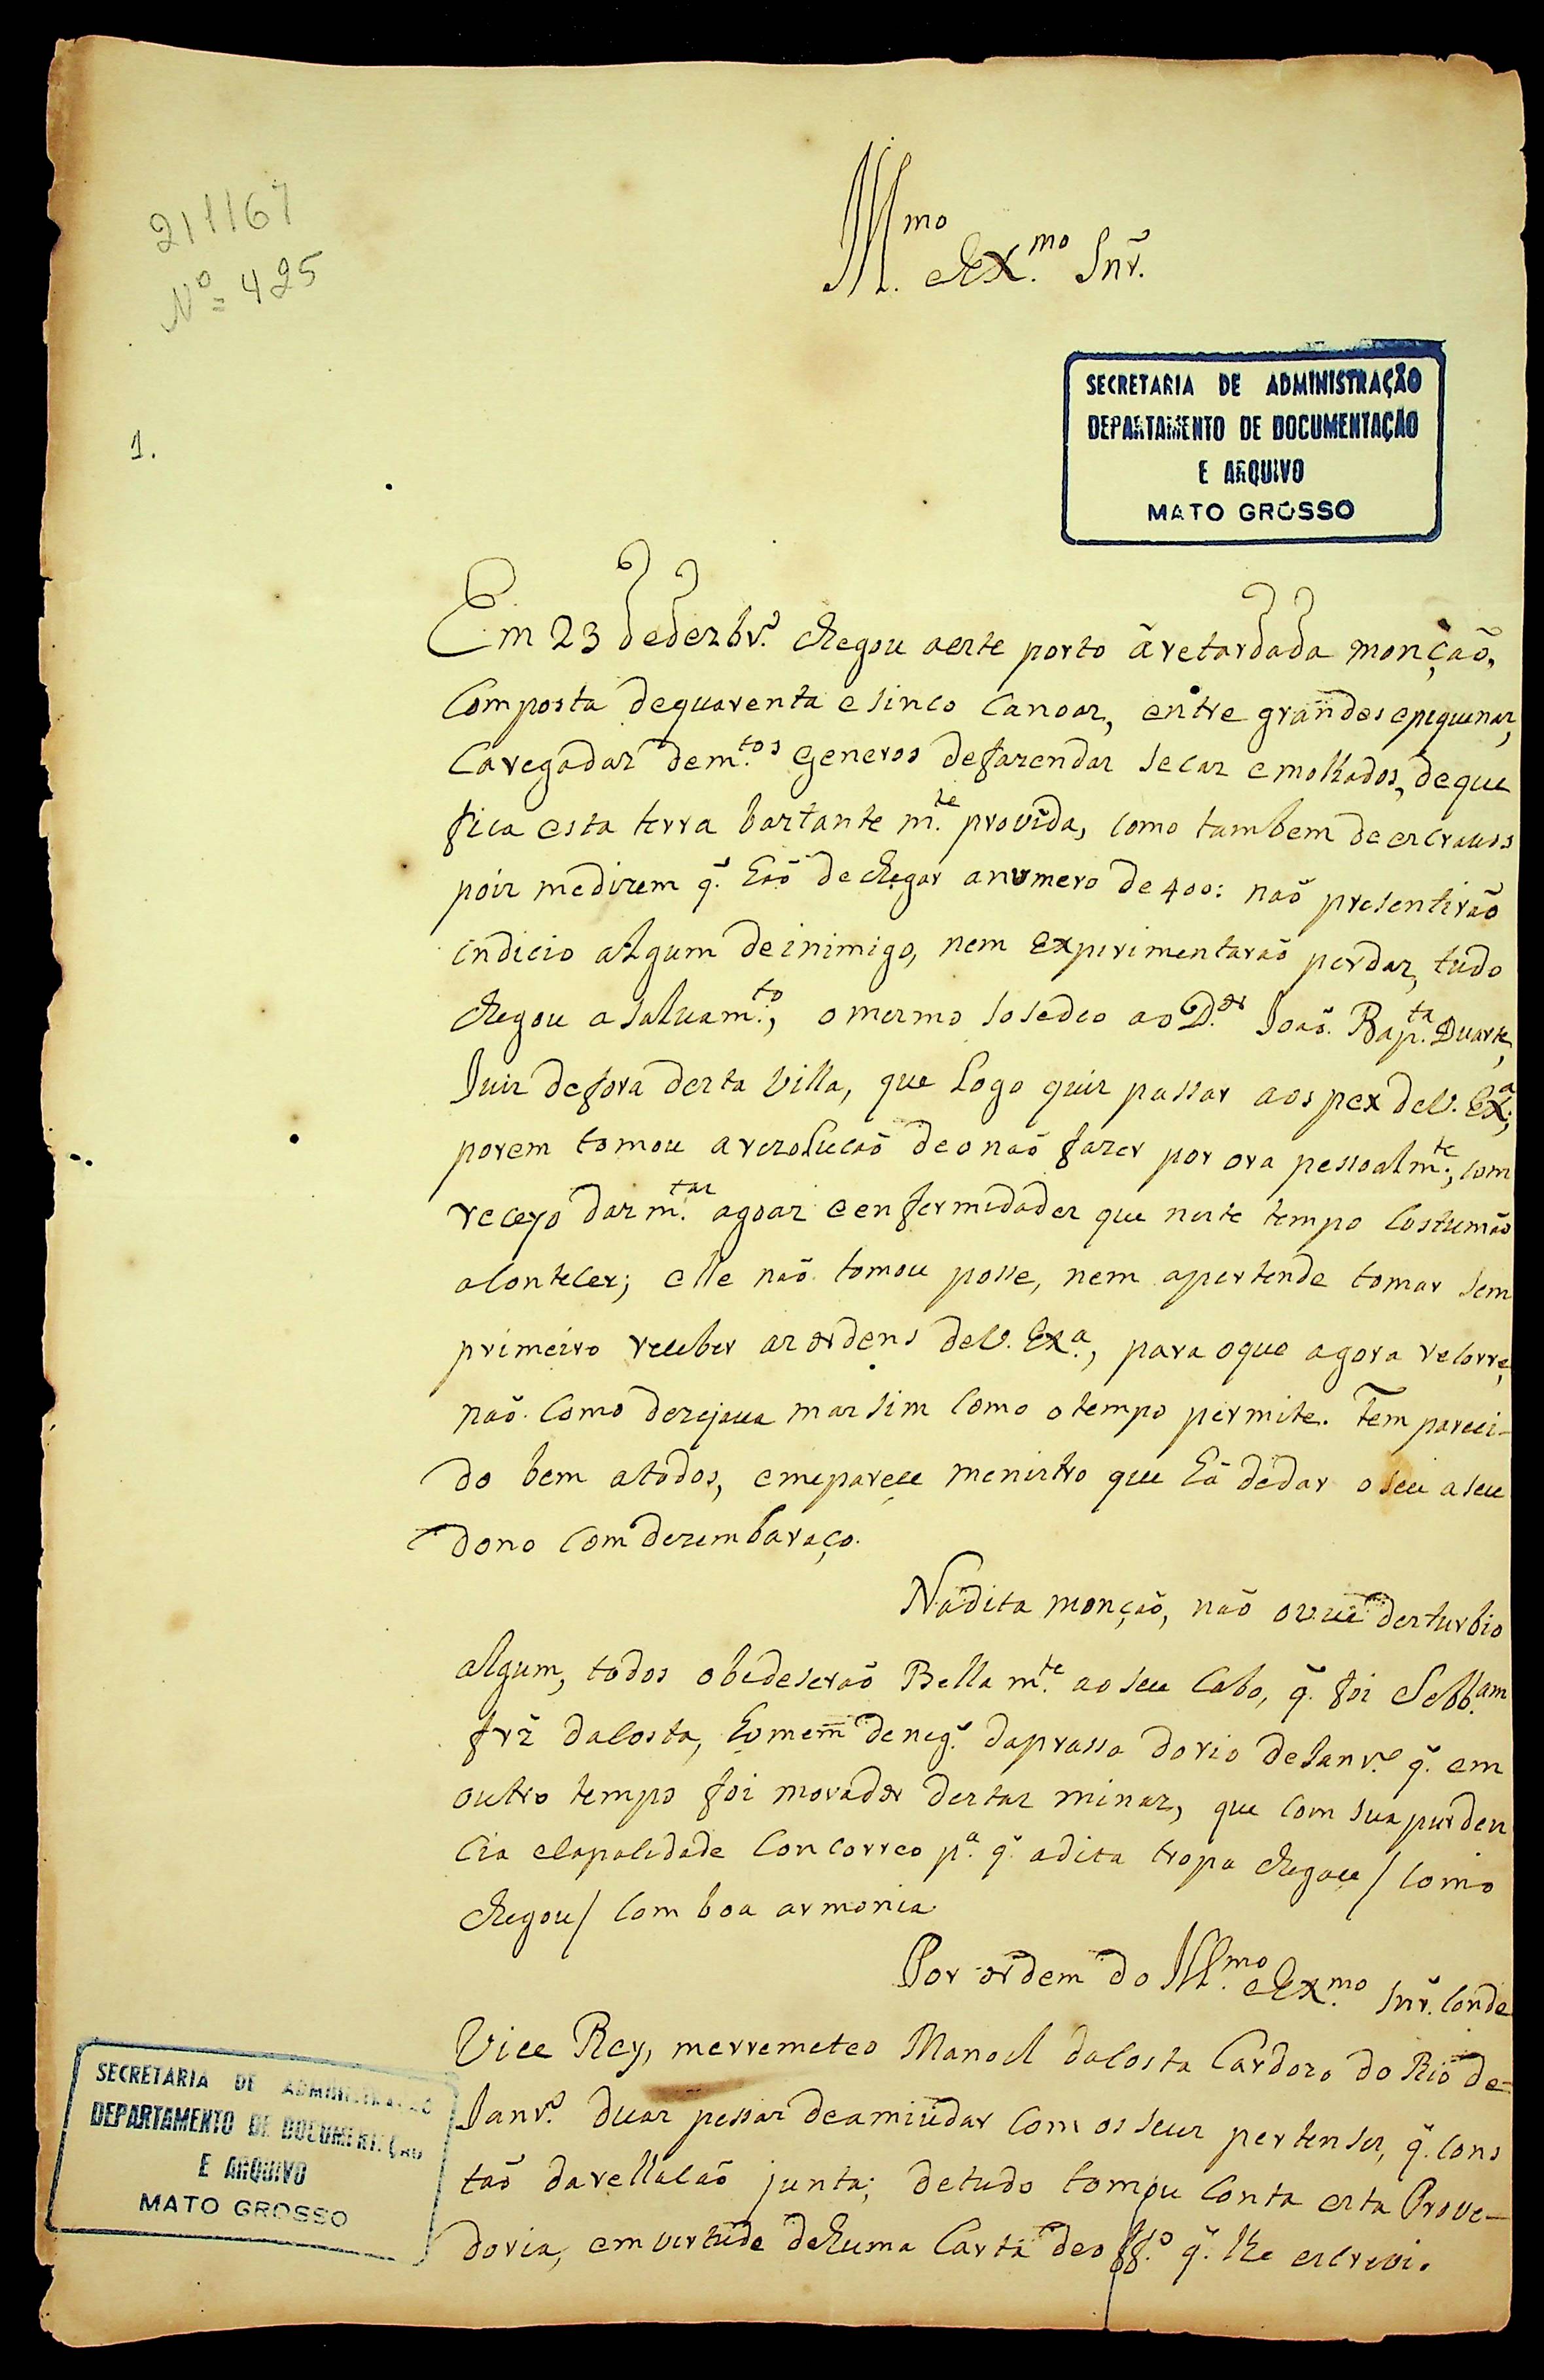 211167
Nº = 425
Ill.mo eEx.mo Snr̃.
SECRETARIA DE ADMINISTRAÇÃO
DEPARTAMENTO DE DOCUMENTAÇÃO
E ARQUIVO
MATO GROSSO
1.
Em 23 dedezbr.º chegou aeste porto áretardada monçaõ,
Composta dequarenta esinco Canoas, entre grandes epiquenas,
Caregadas dem.tos Generos defazendas secas emolhados, deque
fica esta terra bastante m.te provida, como tambem deescravos
pois medizem q̃. haõ dechegar anumero de 400: naõ presentiraõ
indicio algum deinimigo, nem experimentaraõ perdas, tudo
chegou asaluam.to, omesmo sosedeo ao D.or Joaõ Bap.ta Duarte,
Juis defora desta Villa, que Logo quis passar aos pez deV. Ex.a,
porem tomou arezolucaõ deonaõ fazer por ora pessoalm.te, com
receyo das m.tas agoas eenfermidades que neste tempo Costumaõ
aContecer; elle naõ tomou posse, nem apertende tomar sem
primeiro receber as ordens deV. Ex.a, para oque agora recorre,
naõ Como dezejaua mas sim Como otempo permite. Tem pareci-
do bem atodos, emeparece menistro que há dedar oseu aseu
dono Com dezembaraço.
Nadita monçaõ, naõ ouue desturbio
algum, todos obedeseraõ Bella m.te ao seu Cabo, q̃. foi Sebb.am
frz̃ daCosta, homem deneg.º daprassa dorio deJanr.º q̃. em
outro tempo foi morador destas minas, que Com sua purden
cia eCapalidade Concorreo p.a q̃. adita tropa chegace / Como
chegou / Com boa armonia.
Por ordem do Ill.mo eEx.mo Snr̃. Conde
Vice Rey, merremeteo Manoel daCosta Cardozo do Rio de-
Janr.º duas pessas deamiudar Com os seus pertenses, q̃. Cons
taõ darellacaõ junta; detudo tomou Conta esta Prove-
doria, emvertude dehuma Carta deoff.º q̃. lhe escrevi.
SECRETARIA DE ADMINISTRAÇÃO
DEPARTAMENTO DE DOCUMENTAÇÃO
E ARQUIVO
MATO GROSSO